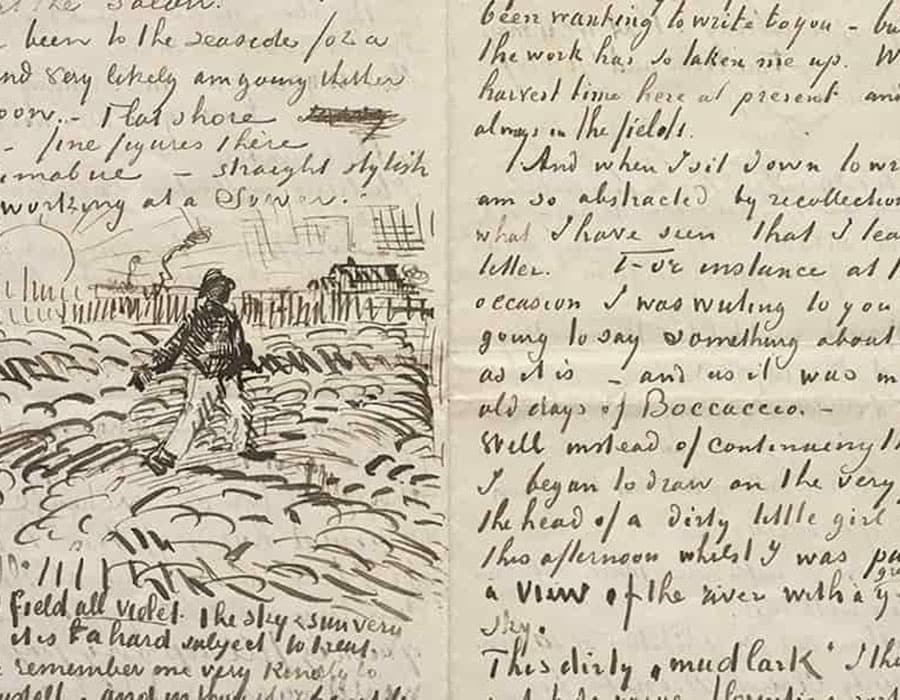 the Salon.
been to the seaside for a
nd very likely am going thither
oon. - Flat shore
- fine figures there
imabue - straight stylish
working at a Sower.
field all violet. the sky & sun very
it is a hard subject to treat.
remember one very kindly to
and in
been wanting to write to you - bu
the work has so taken me up. W
harvest time here at present and
always in the fields.
And when I sit down to wr
am so abstracted by recollection
what I have seen that I lea
letter. For instance at
occasion I was writing to you
going to say something about
as it is - and as it was in
old days of Boccaccio. -
Well instead of continuing th
I began to draw on the very
the head of a dirty little girl
this afternoon whilst I was pa
a view of the river with a gr
sky.
This dirty „mudlark“ I tho